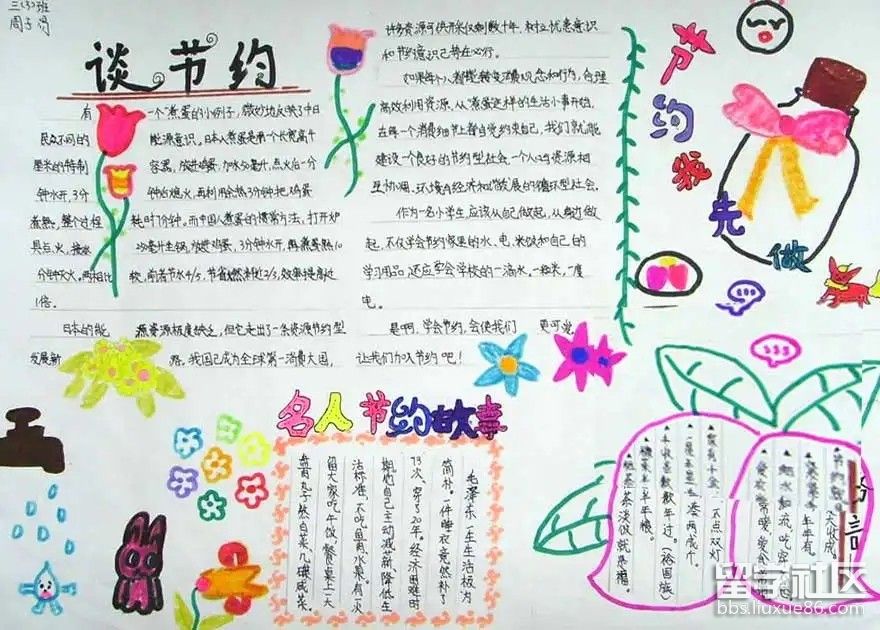 三(3)班
谈节约
有 一个"煮蛋的小例子,微妙地反映了中日
民众不同的 能源意识。日本人煮蛋是用一个长宽高4
厘米的特制 容器,放进鸡蛋,加水50毫升,点火后一分
钟水开,3分 钟后熄火,再利用余热3分钟把鸡蛋
煮熟,整个过程 耗时7分钟。而中国人煮蛋的惯常方法,打开炉
具点火,接水 250毫升生锅,放进鸡蛋,3分钟水开,再煮蛋熟10
分钟灭火。两相比 较,前者节水4/5,节省燃料近2/3,效率提高近
1倍。
日本的能 源资源极度缺乏,但它走出了一条资源节约型
发展新 路,我国已成为全球第一消费大国,
许多资源可供开采仅剩数十年,树立忧患意识
和节约意识已势在必行。
如果每个人都能转变消费观念和行为,合理
高效利用资源,从"煮蛋"这样的生活小事开始,
在每一个消费细节上都自觉约束自己,我们就能
建设一个良好的节约型社会,一个人口与资源相
互协调,环境与经济和谐发展的循环型社会。
作为一名小学生,应该从自己做起,从身边做
起,不仅学会节约家里的水、电、米饭和自己的
学习用品,还应学会学校的一滴水、一粒米,一度
电。
是啊,学会节约,会使我们 更可爱,
让我们加入节约吧!
节约我先做
名人节约故事
毛泽东一生生活极为
简朴。一件睡衣竟然补了
73次、穿了20年。经济困难时
期,他自己主动减薪、降低生
活标准,不吃鱼肉、水果。有一次
留大家吃午饭,餐桌上一大
盘肉丸子熬白菜、几碟咸菜。
节约
天收成。
年年有
细水和流,吃穿
家有十金
不点双灯
一度
丰收
年过。(格面版)
糠菜半年粮。
粗茶淡饭就是福。
留学社区
bbs.liuxue86.com